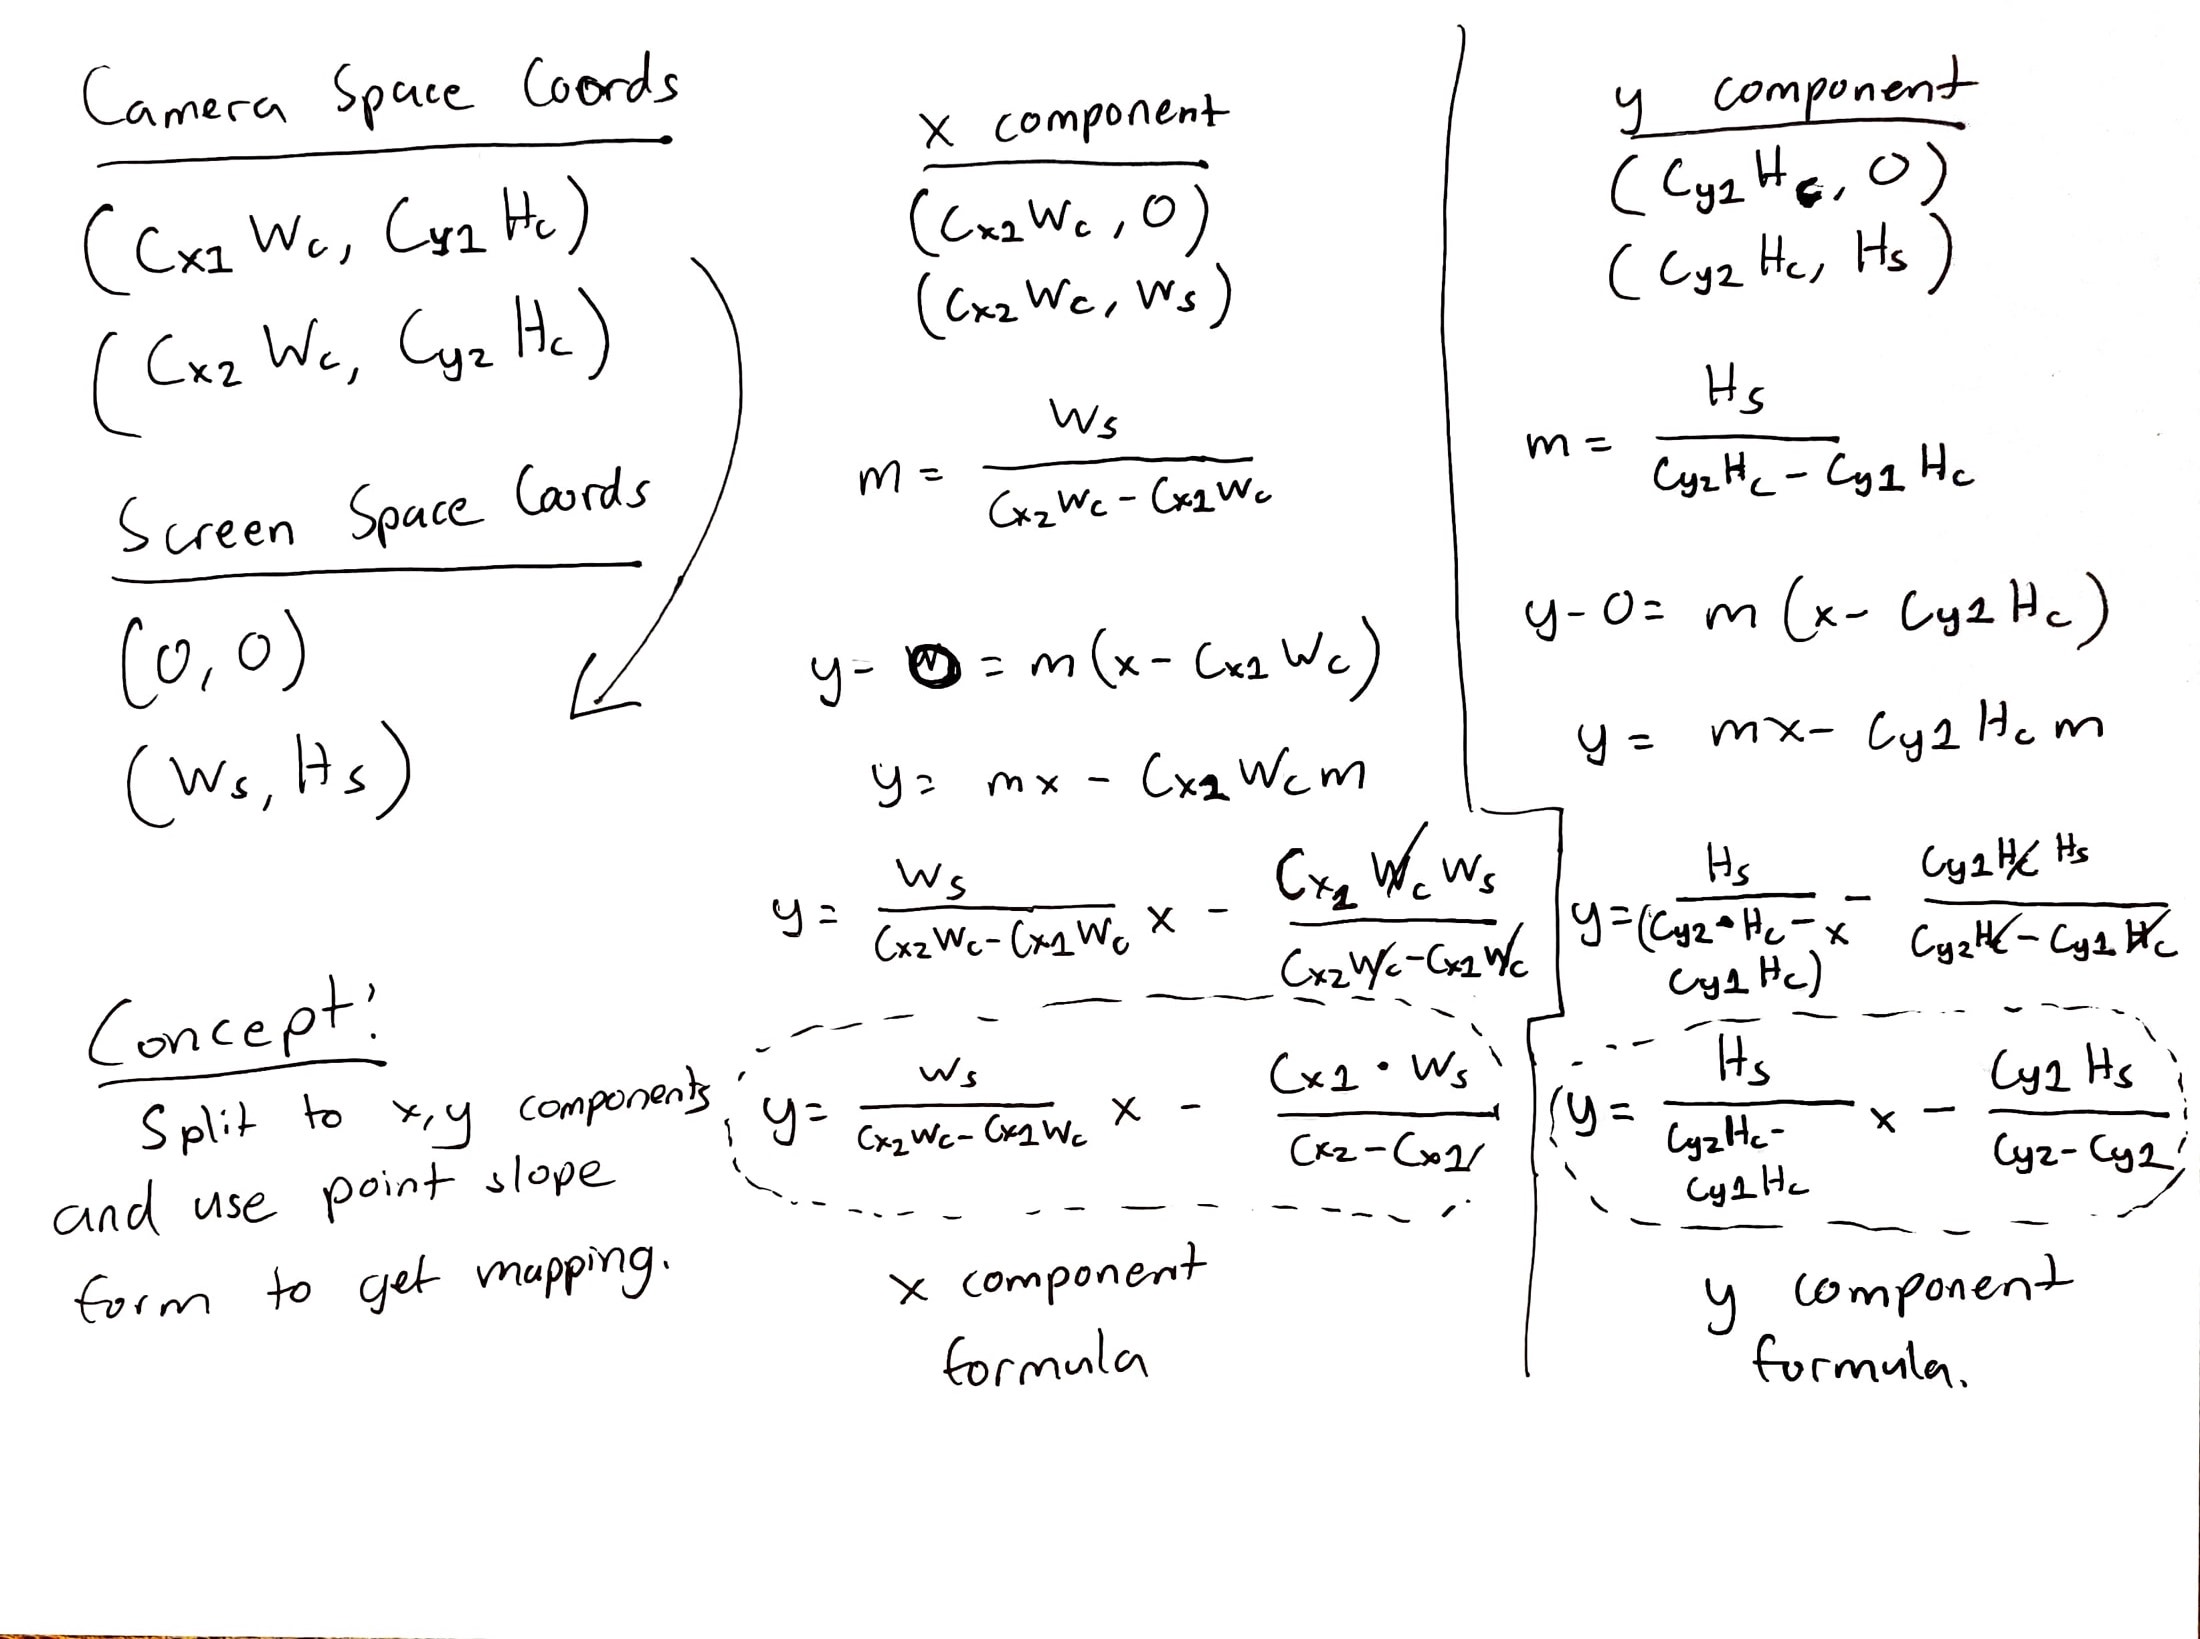 Camera Space Coords
(Cx1 Wc, Cy1 Hc)
(Cx2 Wc, Cy2 Hc)
Screen Space Coords
(0, 0)
(Ws, Hs)
Concept:
Split to x, y components
and use point slope
form to get mapping.
x component
(Cx1 Wc, 0)
(Cx2 Wc, Ws)
m = Ws / (Cx2 Wc - Cx1 Wc)
y - 0 = m (x - Cx1 Wc)
y = mx - Cx1 Wc m
y = Ws / (Cx2 Wc - Cx1 Wc) x - Cx1 Wc Ws / (Cx2 Wc - Cx1 Wc)
y = Ws / (Cx2 Wc - Cx1 Wc) x - Cx1 • Ws / (Cx2 - Cx1)
x component
formula
y component
(Cy1 Hc, 0)
(Cy2 Hc, Hs)
m = Hs / (Cy2 Hc - Cy1 Hc)
y - 0 = m (x - Cy1 Hc)
y = mx - Cy1 Hc m
y = Hs / (Cy2 • Hc - Cy1 Hc) x - Cy1 Hc Hs / (Cy2 Hc - Cy1 Hc)
y = Hs / (Cy2 Hc - Cy1 Hc) x - Cy1 Hs / (Cy2 - Cy1)
y component
formula.